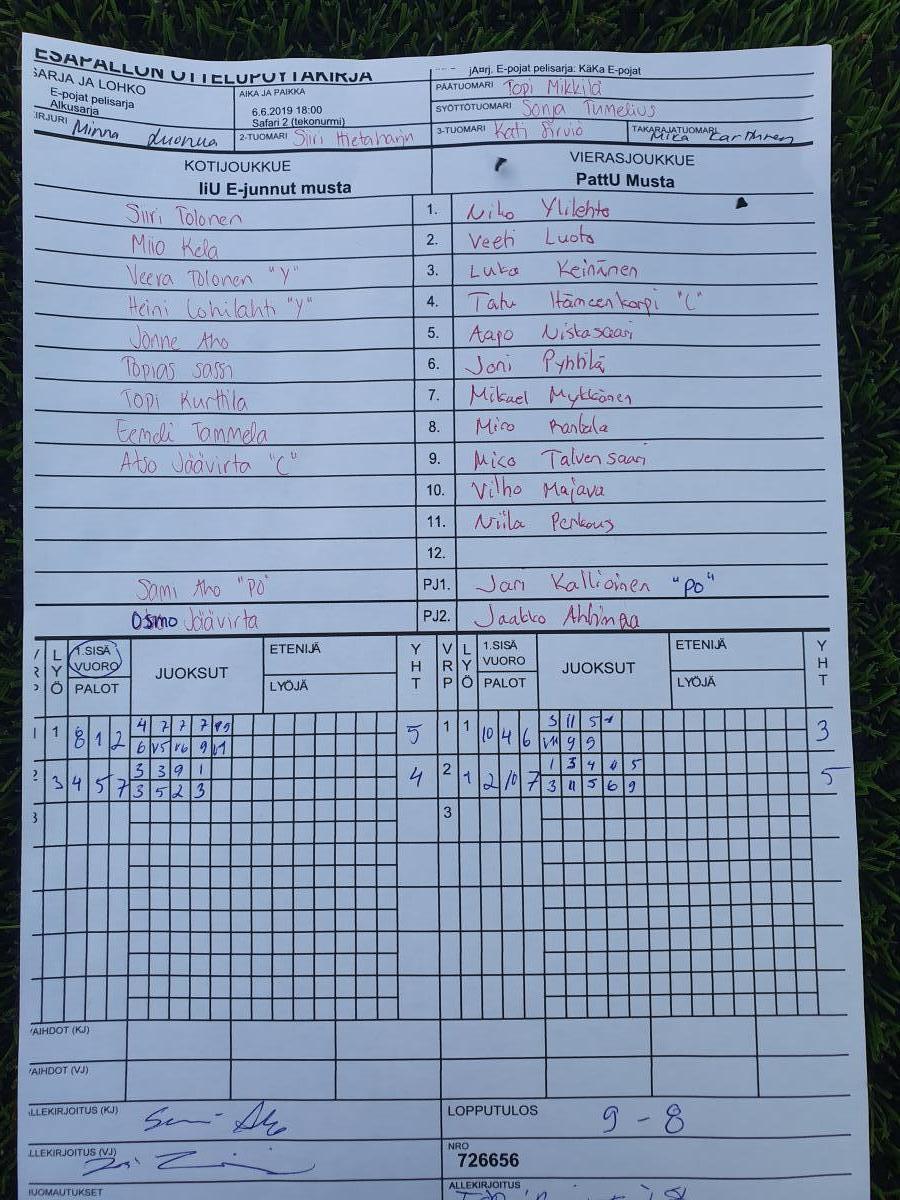 ESAPALLON OTTELUPÖYTÄKIRJA
jA¤rj. E-pojat pelisarja: KäKa E-pojat
SARJA JA LOHKO
E-pojat pelisarja
Alkusarja
AIKA JA PAIKKA
6.6.2019 18:00
Safari 2 (tekonurmi)
PÄÄTUOMARI Topi Mikkilä
SYÖTTÖTUOMARI Sonja Tumelius
IRJURI Minna Luonua
2-TUOMARI Siiri Hietaharju
3-TUOMARI Kati Sirviö
TAKARAJATUOMARI Mika
KOTIJOUKKUE
IiU E-junnut musta
VIERASJOUKKUE
PattU Musta
Siiri Tolonen 1. Niko Ylilehto
Miio Kela 2. Veeti Luoto
Veera Tolonen "Y" 3. Luka Keinänen
Heini Lohilahti "Y" 4. Tatu Hämeenkorpi "C"
Jonne Aho 5. Aapo Niskasaari
Topias Sassi 6. Joni Pyhtilä
Topi Kurttila 7. Mikael Mykkänen
Eemeli Tammela 8. Miro Rantala
Atso Jäävirta "C" 9. Mico Talvensaari
10. Vilho Majava
11. Niila Perkous
12.
Sami Aho "PO" PJ1. Jari Kallioinen "PO"
Osmo Jäävirta PJ2. Jaakko Ahhimaa
LYÖ 1.SISÄ VUORO PALOT JUOKSUT ETENIJÄ LYÖJÄ YHT VRP LYÖ 1.SISÄ VUORO PALOT JUOKSUT ETENIJÄ LYÖJÄ YHT
4 7 7 7 3 11 5
1 8 1 2 5 1 1 10 4 6 3
6 9 9 9
3 3 9 1 1 3 4 5
2 3 4 5 7 4 2 1 2 10 7 5
3 5 2 3 3 11 5 6 9
3 3
AIHDOT (KJ)
AIHDOT (VJ)
LLEKIRJOITUS (KJ)
LOPPUTULOS 9 - 8
LLEKIRJOITUS (VJ)
NRO
726656
HUOMAUTUKSET
ALLEKIRJOITUS